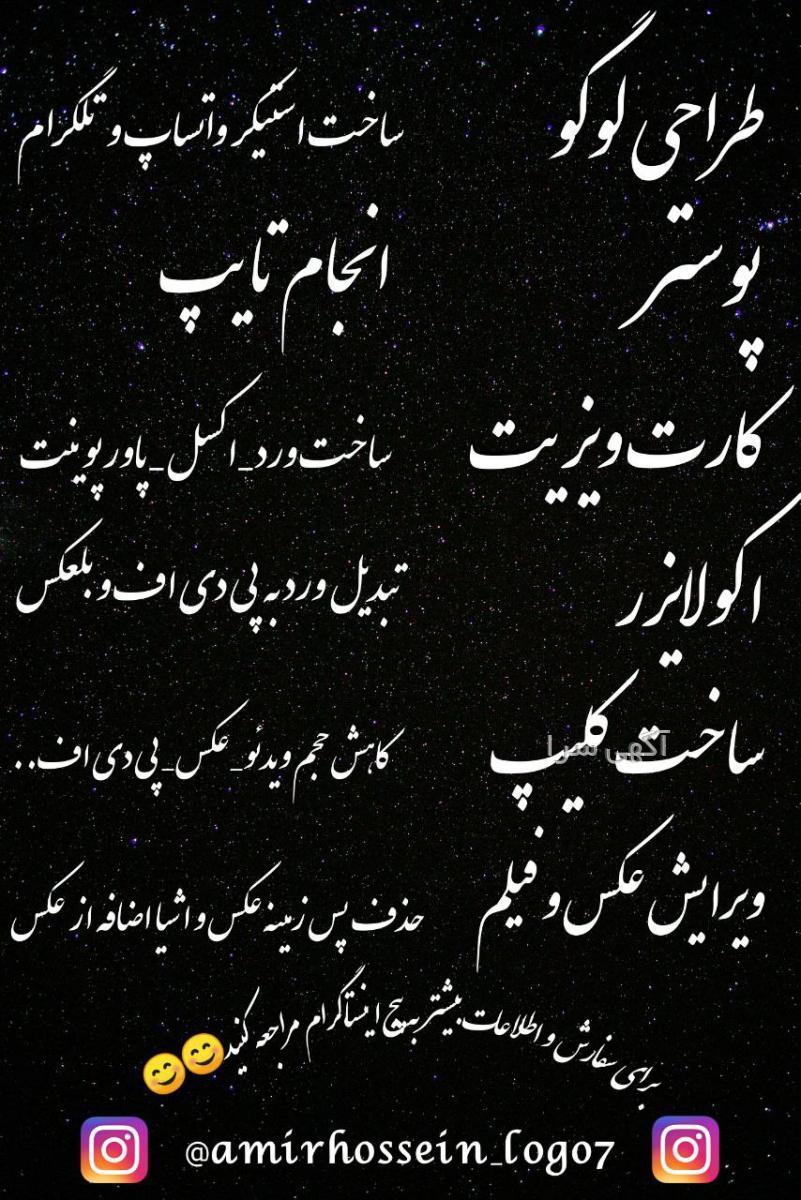 طراحی لوگو
ساخت استیکر واتساپ و تلگرام
پوستر
انجام تایپ
کارت ویزیت
ساخت ورد_اکسل_پاورپوینت
اکولایزر
تبدیل ورد به پی دی اف و بلعکس
ساخت کلیپ
آگهی سرا
کاهش حجم ویدئو_عکس_پی دی اف..
ویرایش عکس و فیلم
حذف پس زمینه عکس و اشیا اضافه از عکس
برای سفارش و اطلاعات بیشتر به پیج اینستاگرام مراجعه کنید😊😊
@amirhossein_logo7